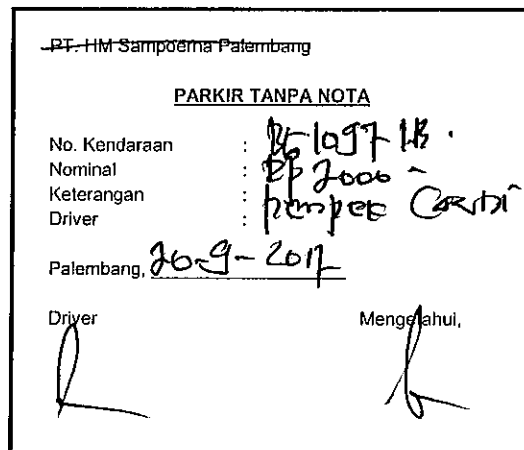 PT. HM Sampoerna Palembang
PARKIR TANPA NOTA
No. Kendaraan :
Nominal : Rp 2000 -
Keterangan : pempek
Driver :
Palembang, 26-9-2017
Driver Mengetahui,